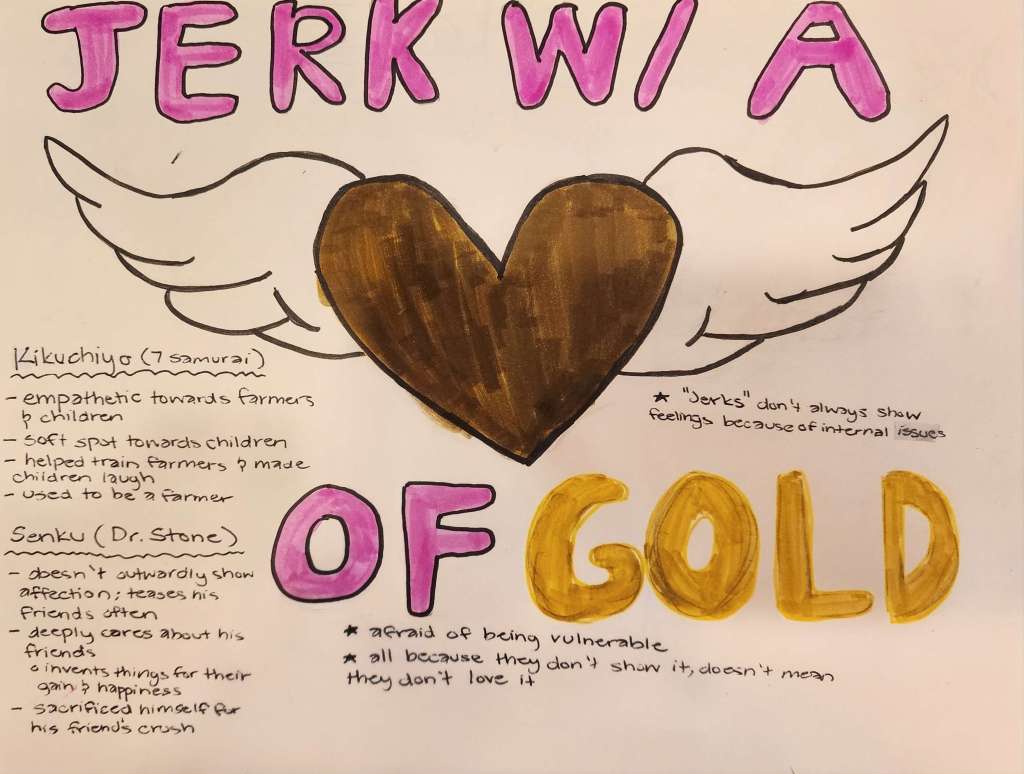 JERK W/ A
OF GOLD
Kikuchiyo (7 samurai)
- empathetic towards farmers
& children
- soft spot towards children
- helped train farmers & made
children laugh
- used to be a farmer
Senku (Dr. Stone)
- doesn't outwardly show
affection; teases his
friends often
- deeply cares about his
friends
o invents things for their
gain & happiness
- sacrificed himself for
his friend's crush
★ "Jerks" don't always show
feelings because of internal issues
★ afraid of being vulnerable
★ all because they don't show it, doesn't mean
they don't love it